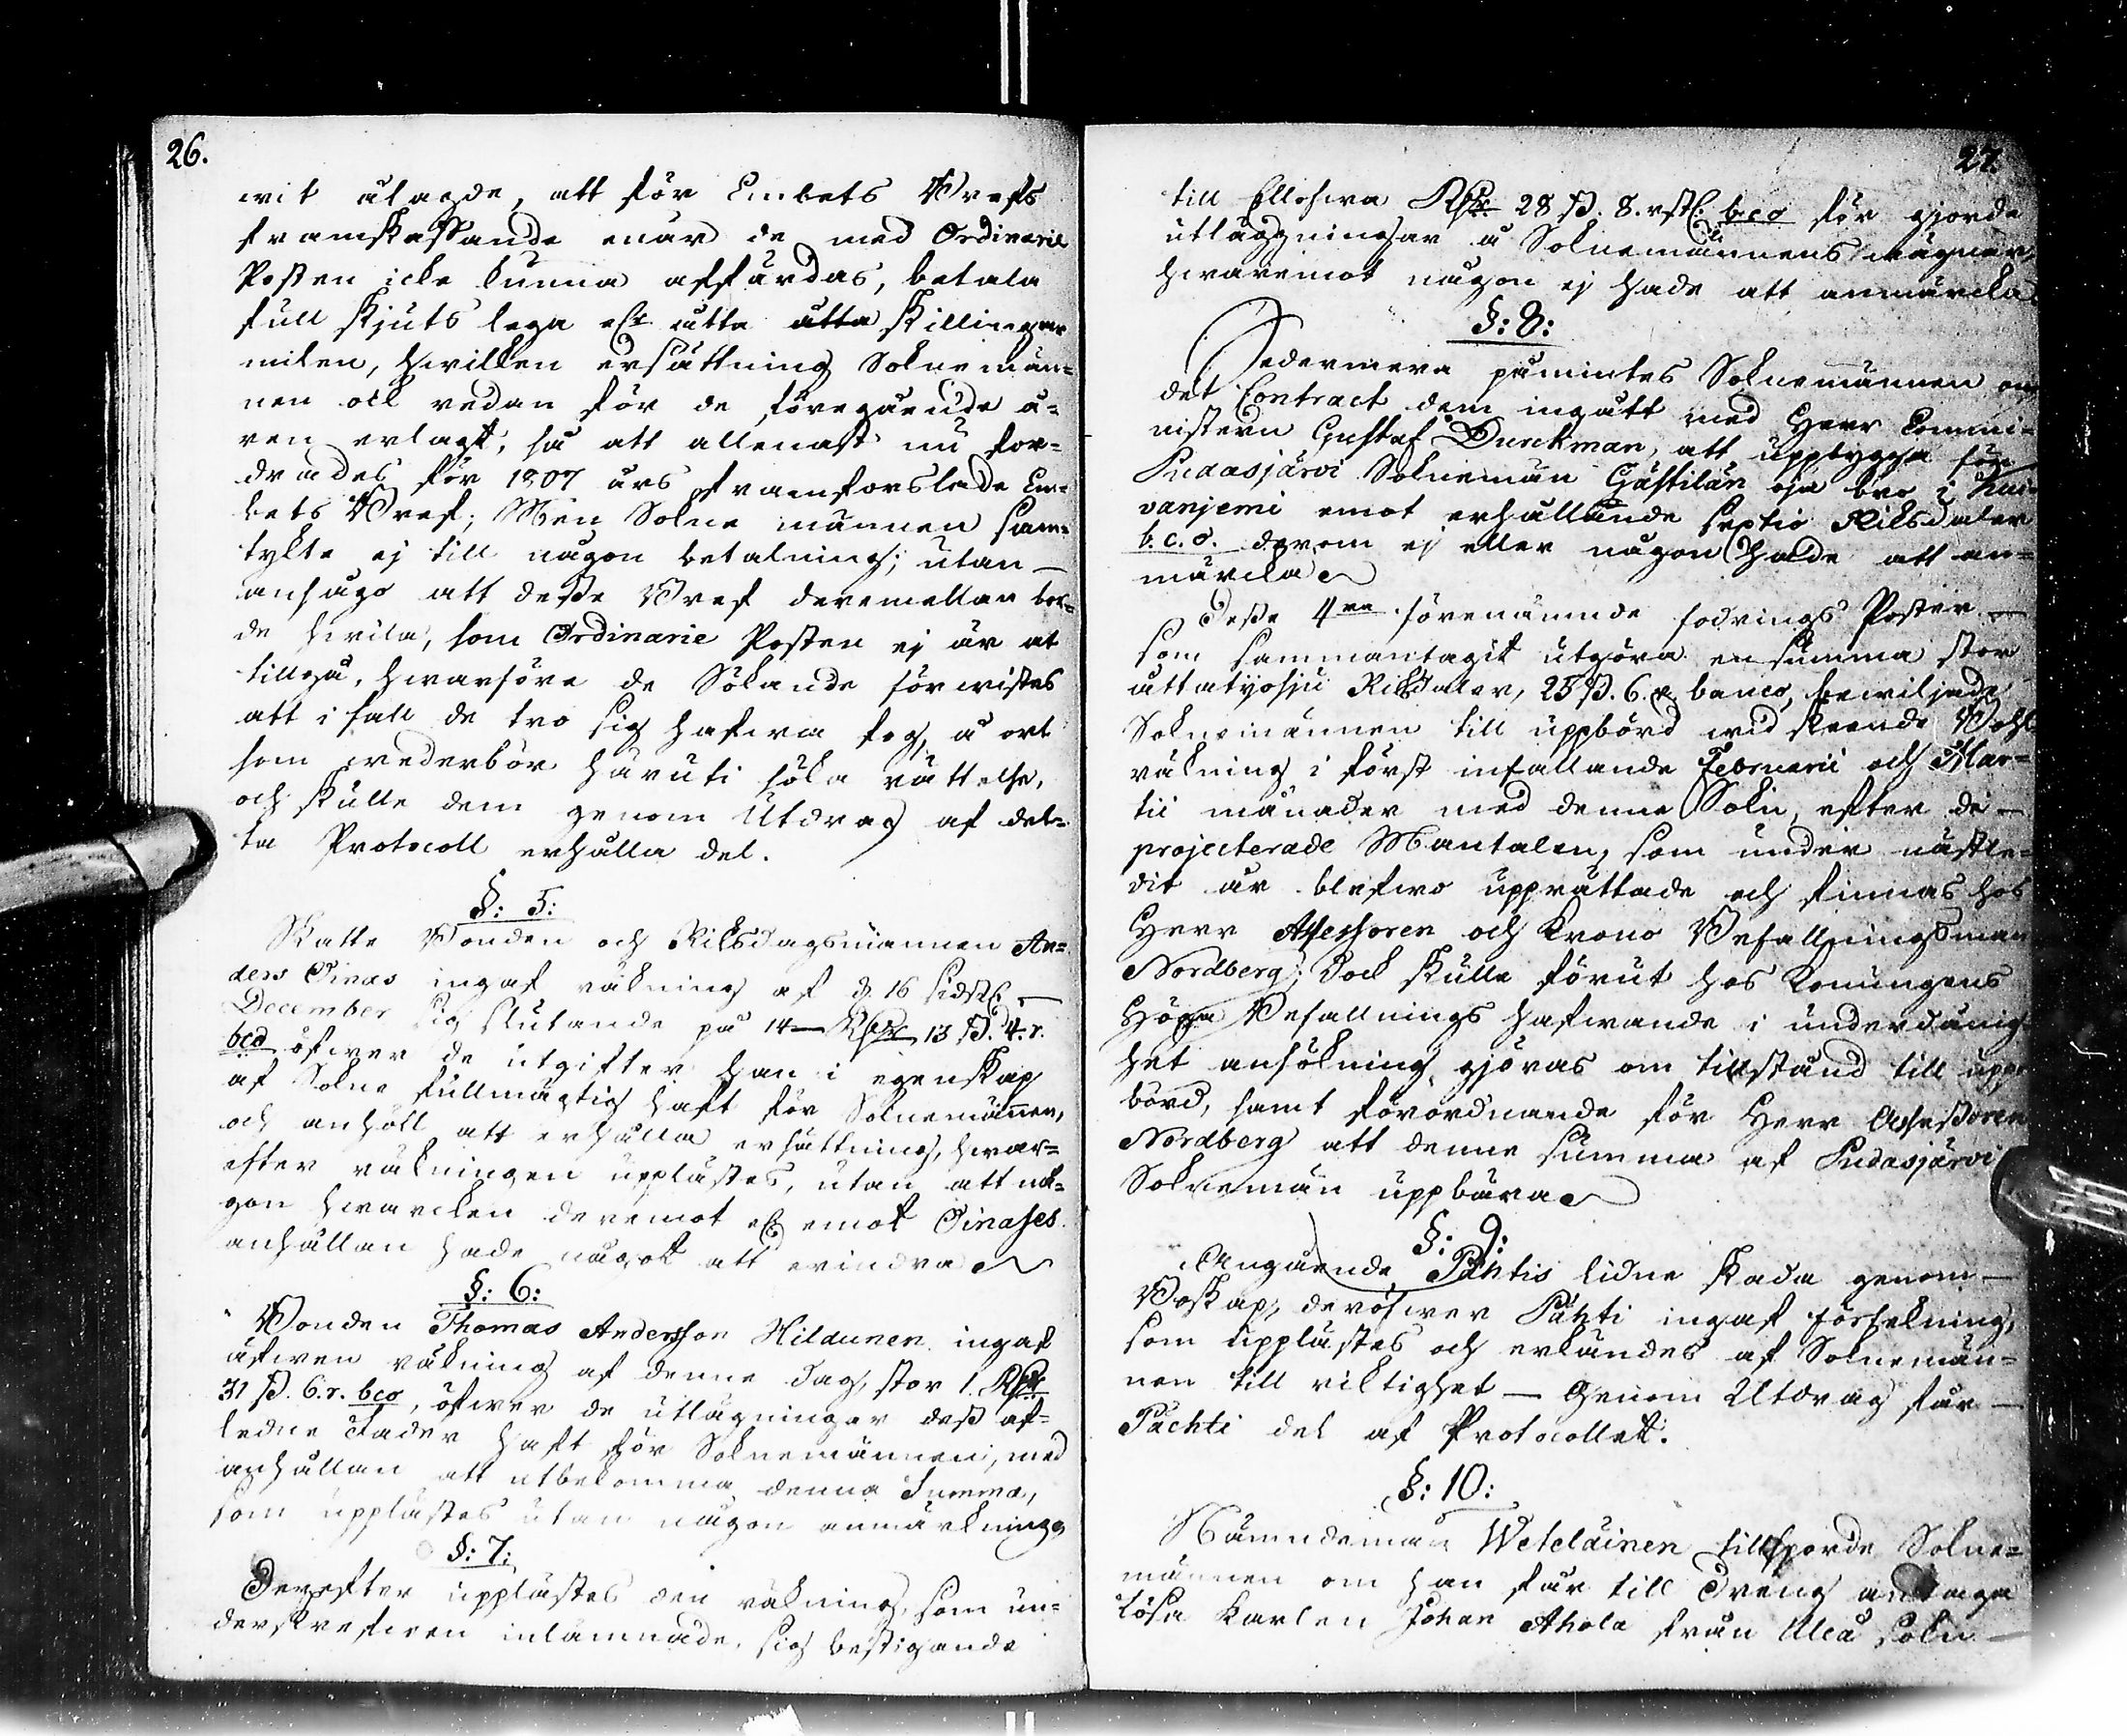 26.
wit ålagde, att för Embets Brefs
framskaffande enär de med Ordinarie
Posten icke kunna affärdas, betala
full skjuts lega eller åtta åtta skillingar
milen, hwilken ersättning Soknemän=
nen ock redan för de föregående å=
ren erlagt, så att allenast nu for=
drades för 1807 års framforslade Em=
bets Bref; Men Sokne männen sam=
tykte ej till någon betalning; utan —
ansågo att desse Bref deremellan bor=
de hwila, som Ordinarie Posten ej är at
tillgå, hwarföre de Sökande förwistes
att i fall de tro sig hafwa fog, å ort
som wederbör häruti söka rättelse,
och skulle dem genom Utdrag af det=
ta Protocoll erhålla del.
§: 5:
Skatte Bonden och Riksdagsmannen An=
ders Oinas ingaf räkning af d. 16 sidstl. —
December sig slutande på 14 — Rdr 13 ß. 4. r.
bco öfwer de utgifter han i egenskap
af Sokne fullmägtig haft för Soknemännen,
och anhöll att erhålla ersättning, hwar=
efter räkningen upplästes, utan att nå=
gon hwarcken deremot eller emot Oinases
anhållan hade något att erindra
§: 6:
Bonden Thomas Andersson Hildunen ingaf
äfwen räkning af denne dag, stor 1. Rdr
31 ß. 6. r. bco, öfwer de utlägningar dess af=
ledne Fader haft för Soknemännen, med
anhållan att utbekomma denna Summa,
som upplästes utan någon anmärkning
§: 7:
Derefter upplästes den räkning, som un=
derskrefwen inlämnade, sig bestigande
27.
till Ellofwa Rdr 28 ß. 8. rst. bco för gjorde
utläggningar å Soknemännens wägnar,
hwaremot någon ej hade att anmärcka
§: 8:
Sedermera påmintes Soknemännen om
det Contract dem ingått med Herr Commi=
nistern Gustaf Durckman, att uppbygga för
Pudasjärvi Soknemän Gästilän oja bro i Kui=
vanjemi emot erhållande septio Riksdaler
b.c.o. derom ej eller någon hade att an=
märcka
Desse 4ra förenämnde fodrings Poster —
som sammantagit utgöra en summa stor
åttatijosju Riksdaler, 25 ß. 6. r banco, bewiljade
Soknemännen till uppbörd wid skeende Wohl
räkning i först infallande Februarii och Mar=
tii månader med denne Sokn, efter de —
projecterade Mantalen, som under nästle=
dit år blefwo upprättade och finnas hos
Herr Assessoren och Krono Befallningsman
Nordberg; dock skulle förut hos Konungens
Höga Befallnings hafwande i underdånig
het ansökning göras om tillstånd till upp
börd, samt förordnande för Herr Assessoren
Nordberg att denne summa af Pudasjärvi
Soknemän uppbära
§: 9:
Angående Pähtis lidne skada genom —
Boskap, deröfwer Pähti ingaf förtekning,
som upplästes och erkändes af Soknemän=
nen till riktighet — Genom Utdrag får —
Pächti del af Protocollet.
§: 10:
Nämndeman Weteläinen tillsporde Sokne=
männen om han får till Dreng antaga
lösa Karlen Johan Ahola från Uleå Sokn —